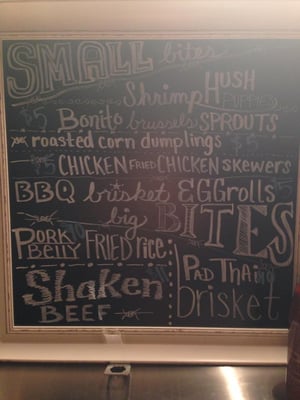 SMALL bites
Shrimp HUSH PUPPIES
$5
Bonito brussels SPROUTS
roasted corn dumplings $5
$5 CHICKEN FRIED CHICKEN skewers
BBQ brisket EGGrolls $5
big BITES
PORK BELLY FRIED rice
PAD THAI
Shaken BEEF
brisket